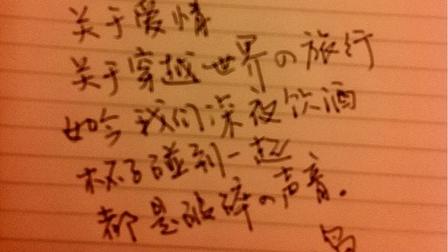 关于爱情
关于穿越世界の旅行
如今我们深夜饮酒
杯子碰到一起
都是破碎の声音。